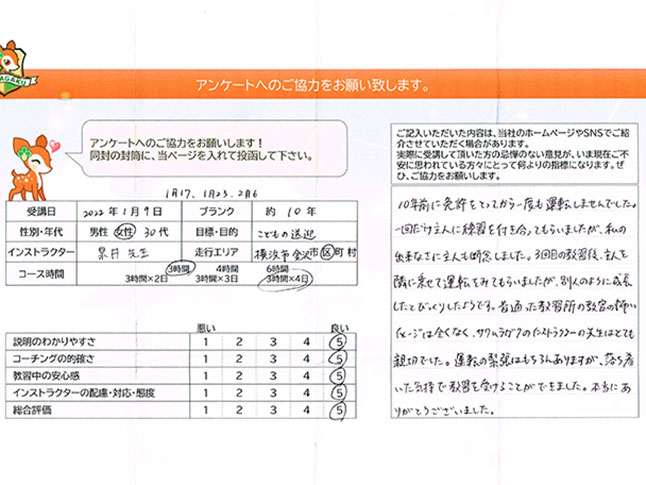 AGAKU
アンケートへのご協力をお願い致します。
アンケートへのご協力をお願いします！
同封の封筒に、当ページを入れて投函して下さい。
1月17、1月23、2月6
受講日 2022年1月9日 ブランク 約10年
性別・年代 男性 女性 30代 目標・目的 こどもの送迎
インストラクター 先生 走行エリア 横浜市金沢市区町村
コース時間 3時間 4時間 6時間
3時間×2日 3時間×3日 3時間×4日
悪い 良い
説明のわかりやすさ 1 2 3 4 5
コーチングの的確さ 1 2 3 4 5
教習中の安心感 1 2 3 4 5
インストラクターの配慮・対応・態度 1 2 3 4 5
総合評価 1 2 3 4 5
ご記入いただいた内容は、当社のホームページやSNSでご紹
介させていただく場合があります。
実際に受講して頂いた方の忌憚のない意見が、いま現在ご不
安に思われている方々にとって何よりの指標になります。ぜ
ひ、ご協力をお願いします。
10年前に免許をとってから一度も運転しませんでした。
一回だけ主人に練習を付き合ってもらいましたが、私の
出来なさに主人も断念しました。3回目の教習後、主人を
隣に乗せて運転をみてもらいましたが、別人のように成長
したとびっくりしたようです。昔通った教習所の教官の怖い
イメージは全くなく、サワムラガクのインストラクターの先生はとても
親切でした。運転の緊張はもちろんありますが、落ち着
いた気持で教習を受けることができました。本当にあ
りがとうございました。